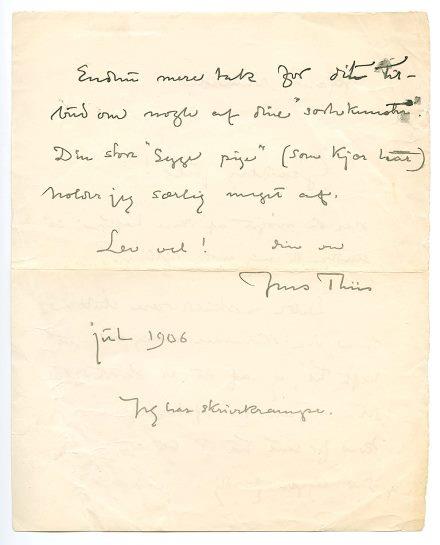 Endnu mere tak for dit til-
bud om nogle af dine "sortekunster".
Din store "Syge pige" (som Kjær har)
holder jeg særlig meget af.
Lev vel! din ven
Jens Thiis
juli 1906
Jeg har skrivekrampe.